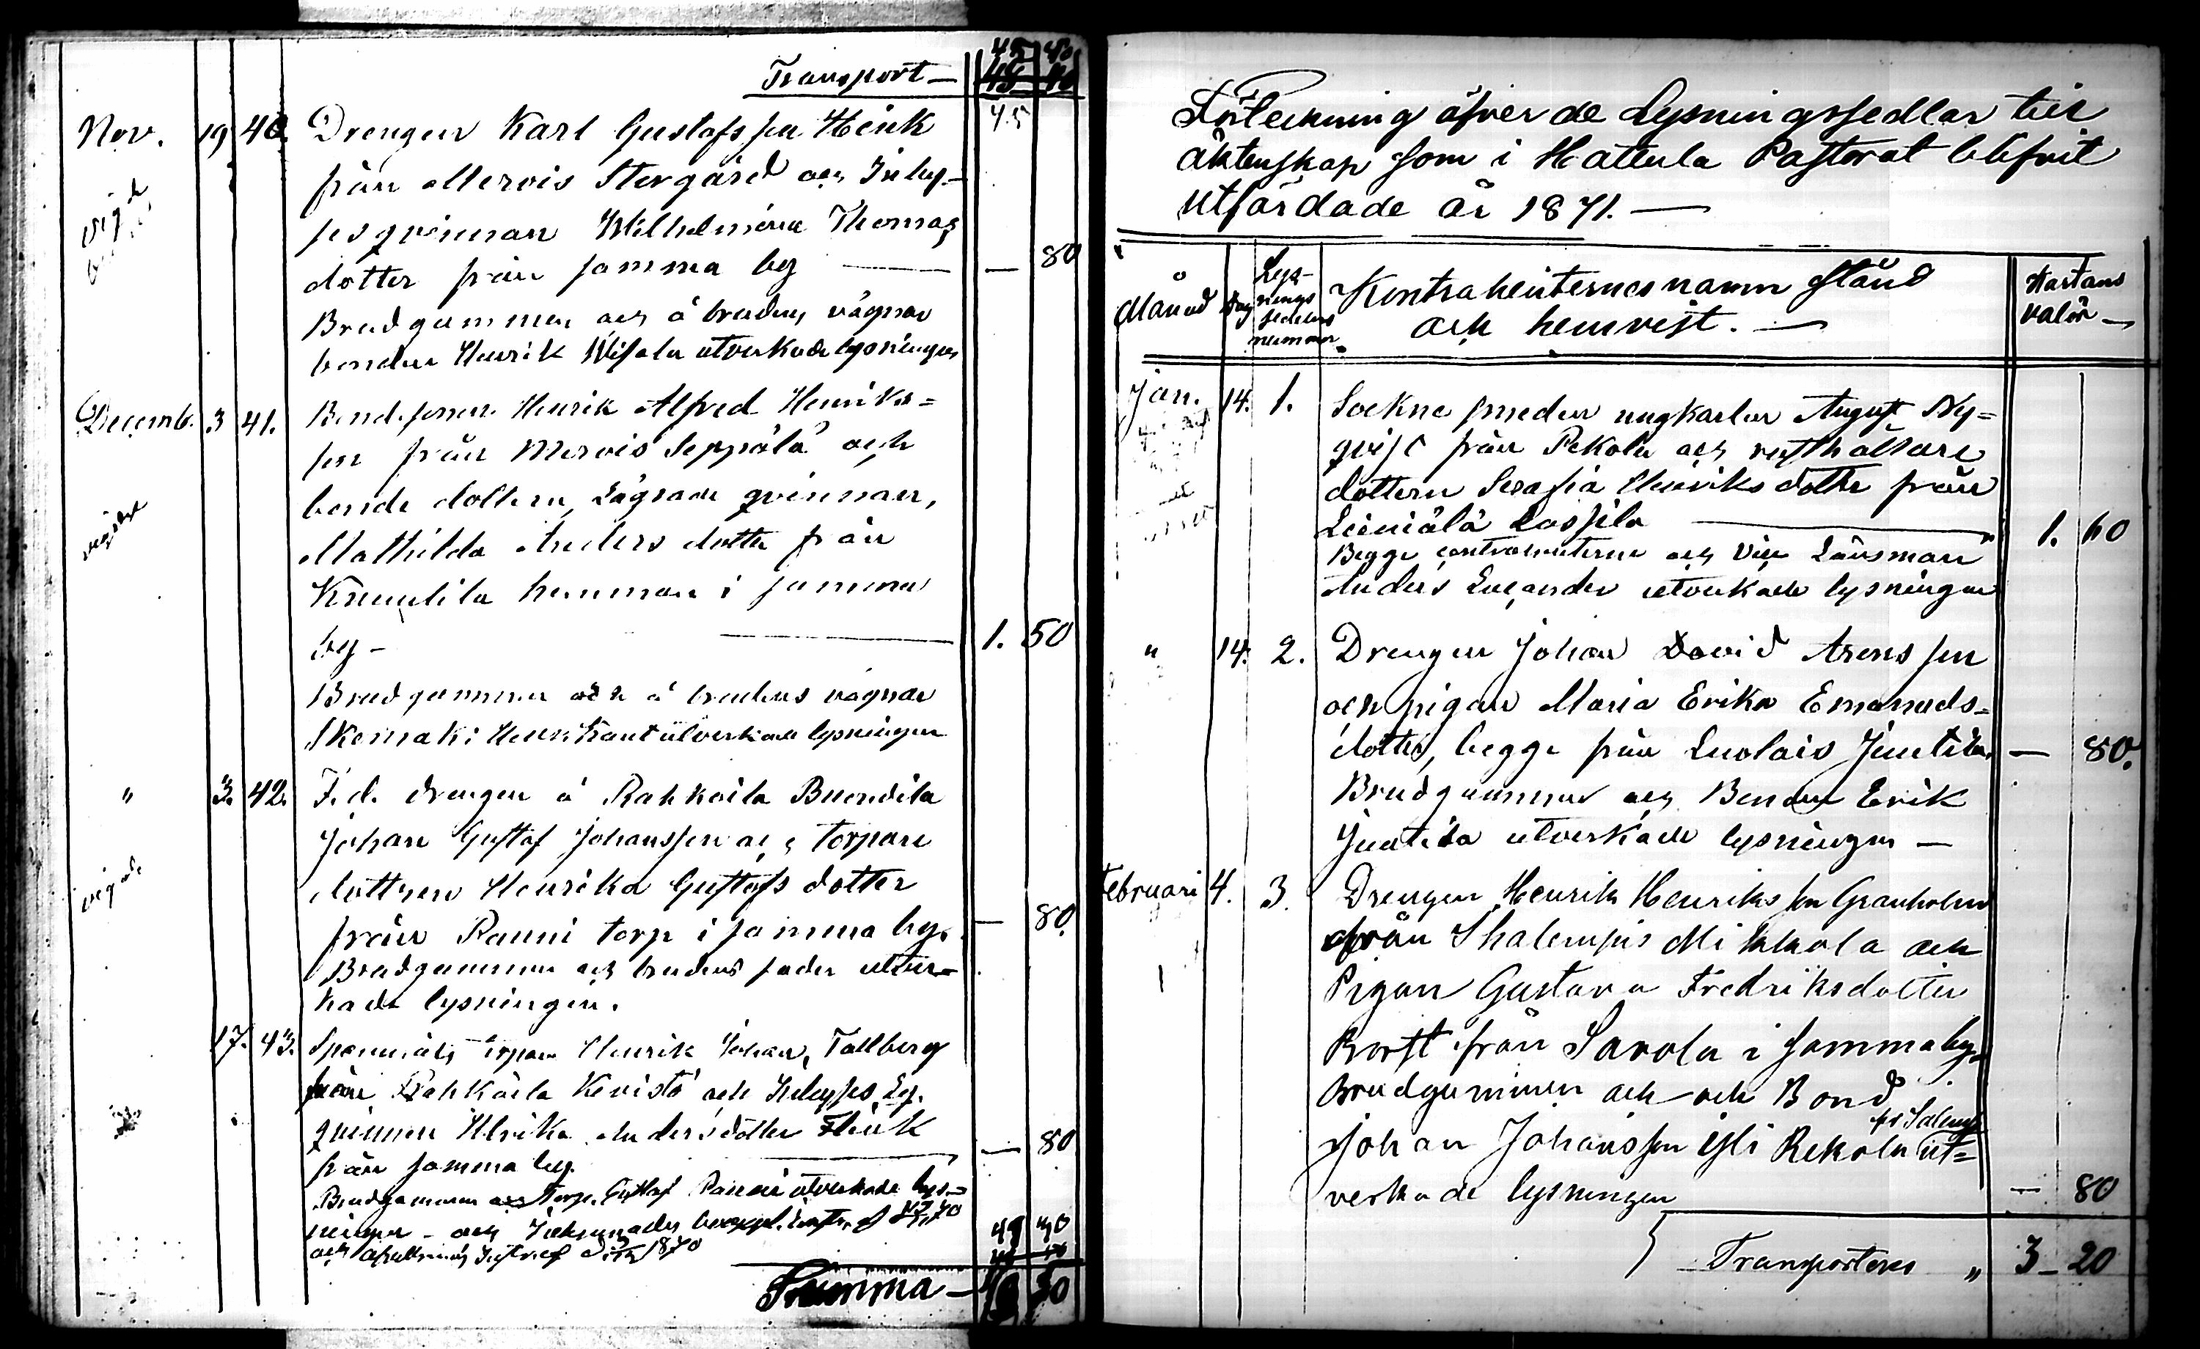 Transport —
45 40
Nov. 19 40. Drengen Karl Gustafsson Henk
från Mervis Storgård och Inhy-
sesqvinnan Wilhelmina Thomas
dotter från samma by — — 80
Brudgummen och å brudens vägnar
bonden Henrik Wisala utverkade lysningen
vigde
Decemb. 3 41. Bondesonen Henrik Alfred Henriks=
son från Mervis Seppälä och
bonde dottern, Lägrade qvinnan,
Mathilda Anders dotter från
hemman i samma
by — 1. 50
Brudgummen och å brudens vägnar
utverkade lysningen
" 3. 42. F.d. drengen å Rahkoila Buendila
Johan Gustaf Johansson och torpare
dottren Henrika Gustafs dotter
från Rauni torp i samma by. — 80.
Brudgummen och brudens fader utver-
kade lysningen.
vigde
17. 43. torparen Henrik Johan Tallberg
från Rahkoila Kivistö och Inhyses
qvinnan Ulrika Anders dotter Flink
från samma by. — 80
Brudgummen och Torp. Gustaf utverkade lys-
ningen – och
1870
49 30
Summa — 49 30
Förteckning öfver de Lysningssedlar till
äktenskap som i Hattula Pastorat blifvit
utfärdade år 1871. —
Månad Dag Lys-
nings
sedelns
nummer Kontrahenternes namn stånd
och hemvist. — Kartans
valör —
Jan. 14. 1. Sockne smeden ungkarlen August Ny=
qvist från Pekola och rusthållare
dottern Serafia Henriks dotter från
Leiniälä Lassila — 1. 60
Begge contrahenterne och Vice Länsman
Anders utverkade lysningen
" 14. 2. Drengen Johan David Arons son
och pigan Maria Erika Emanuels-
dotter, begge från Luolais Juutila. — 80.
Brudgummen och Bonden Erik
Juutila utverkade lysningen —
Februari 4. 3. Drengen Henrik Henriks son Granholm
från Shalempis Mikkola och
Pigan Gustava Fredriksdotter
Borst från Savola i samma by.
Brudgummen och och Bond
Johan Johansson Yli Rekola ut=
verkade lysningen — 80
Transporteres " 3 — 20